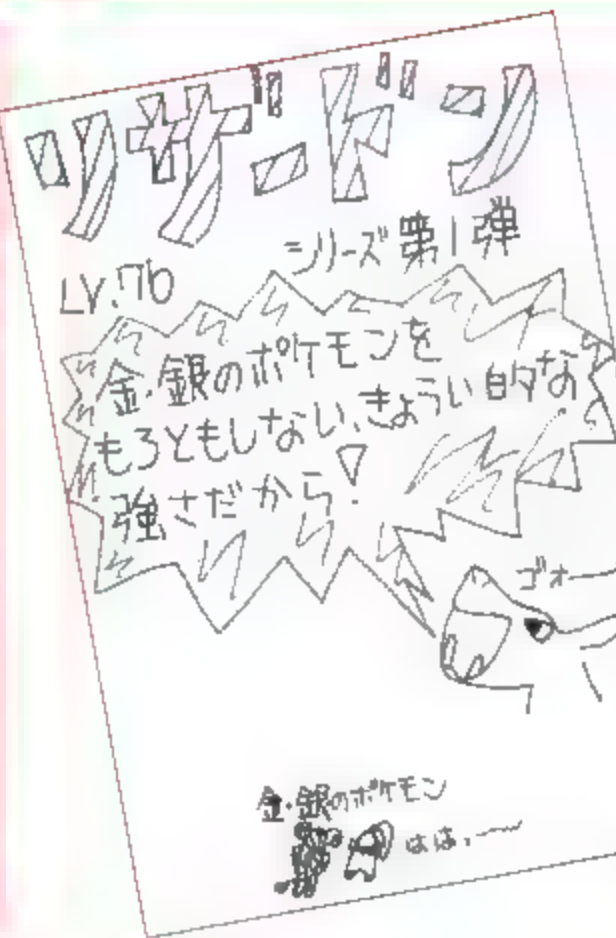 リザードン
シリーズ第1弾
LV.76
金・銀のポケモンを
もろともしない、きょうい的な
強さだから!
ゴォー
金・銀のポケモン
はは、〜